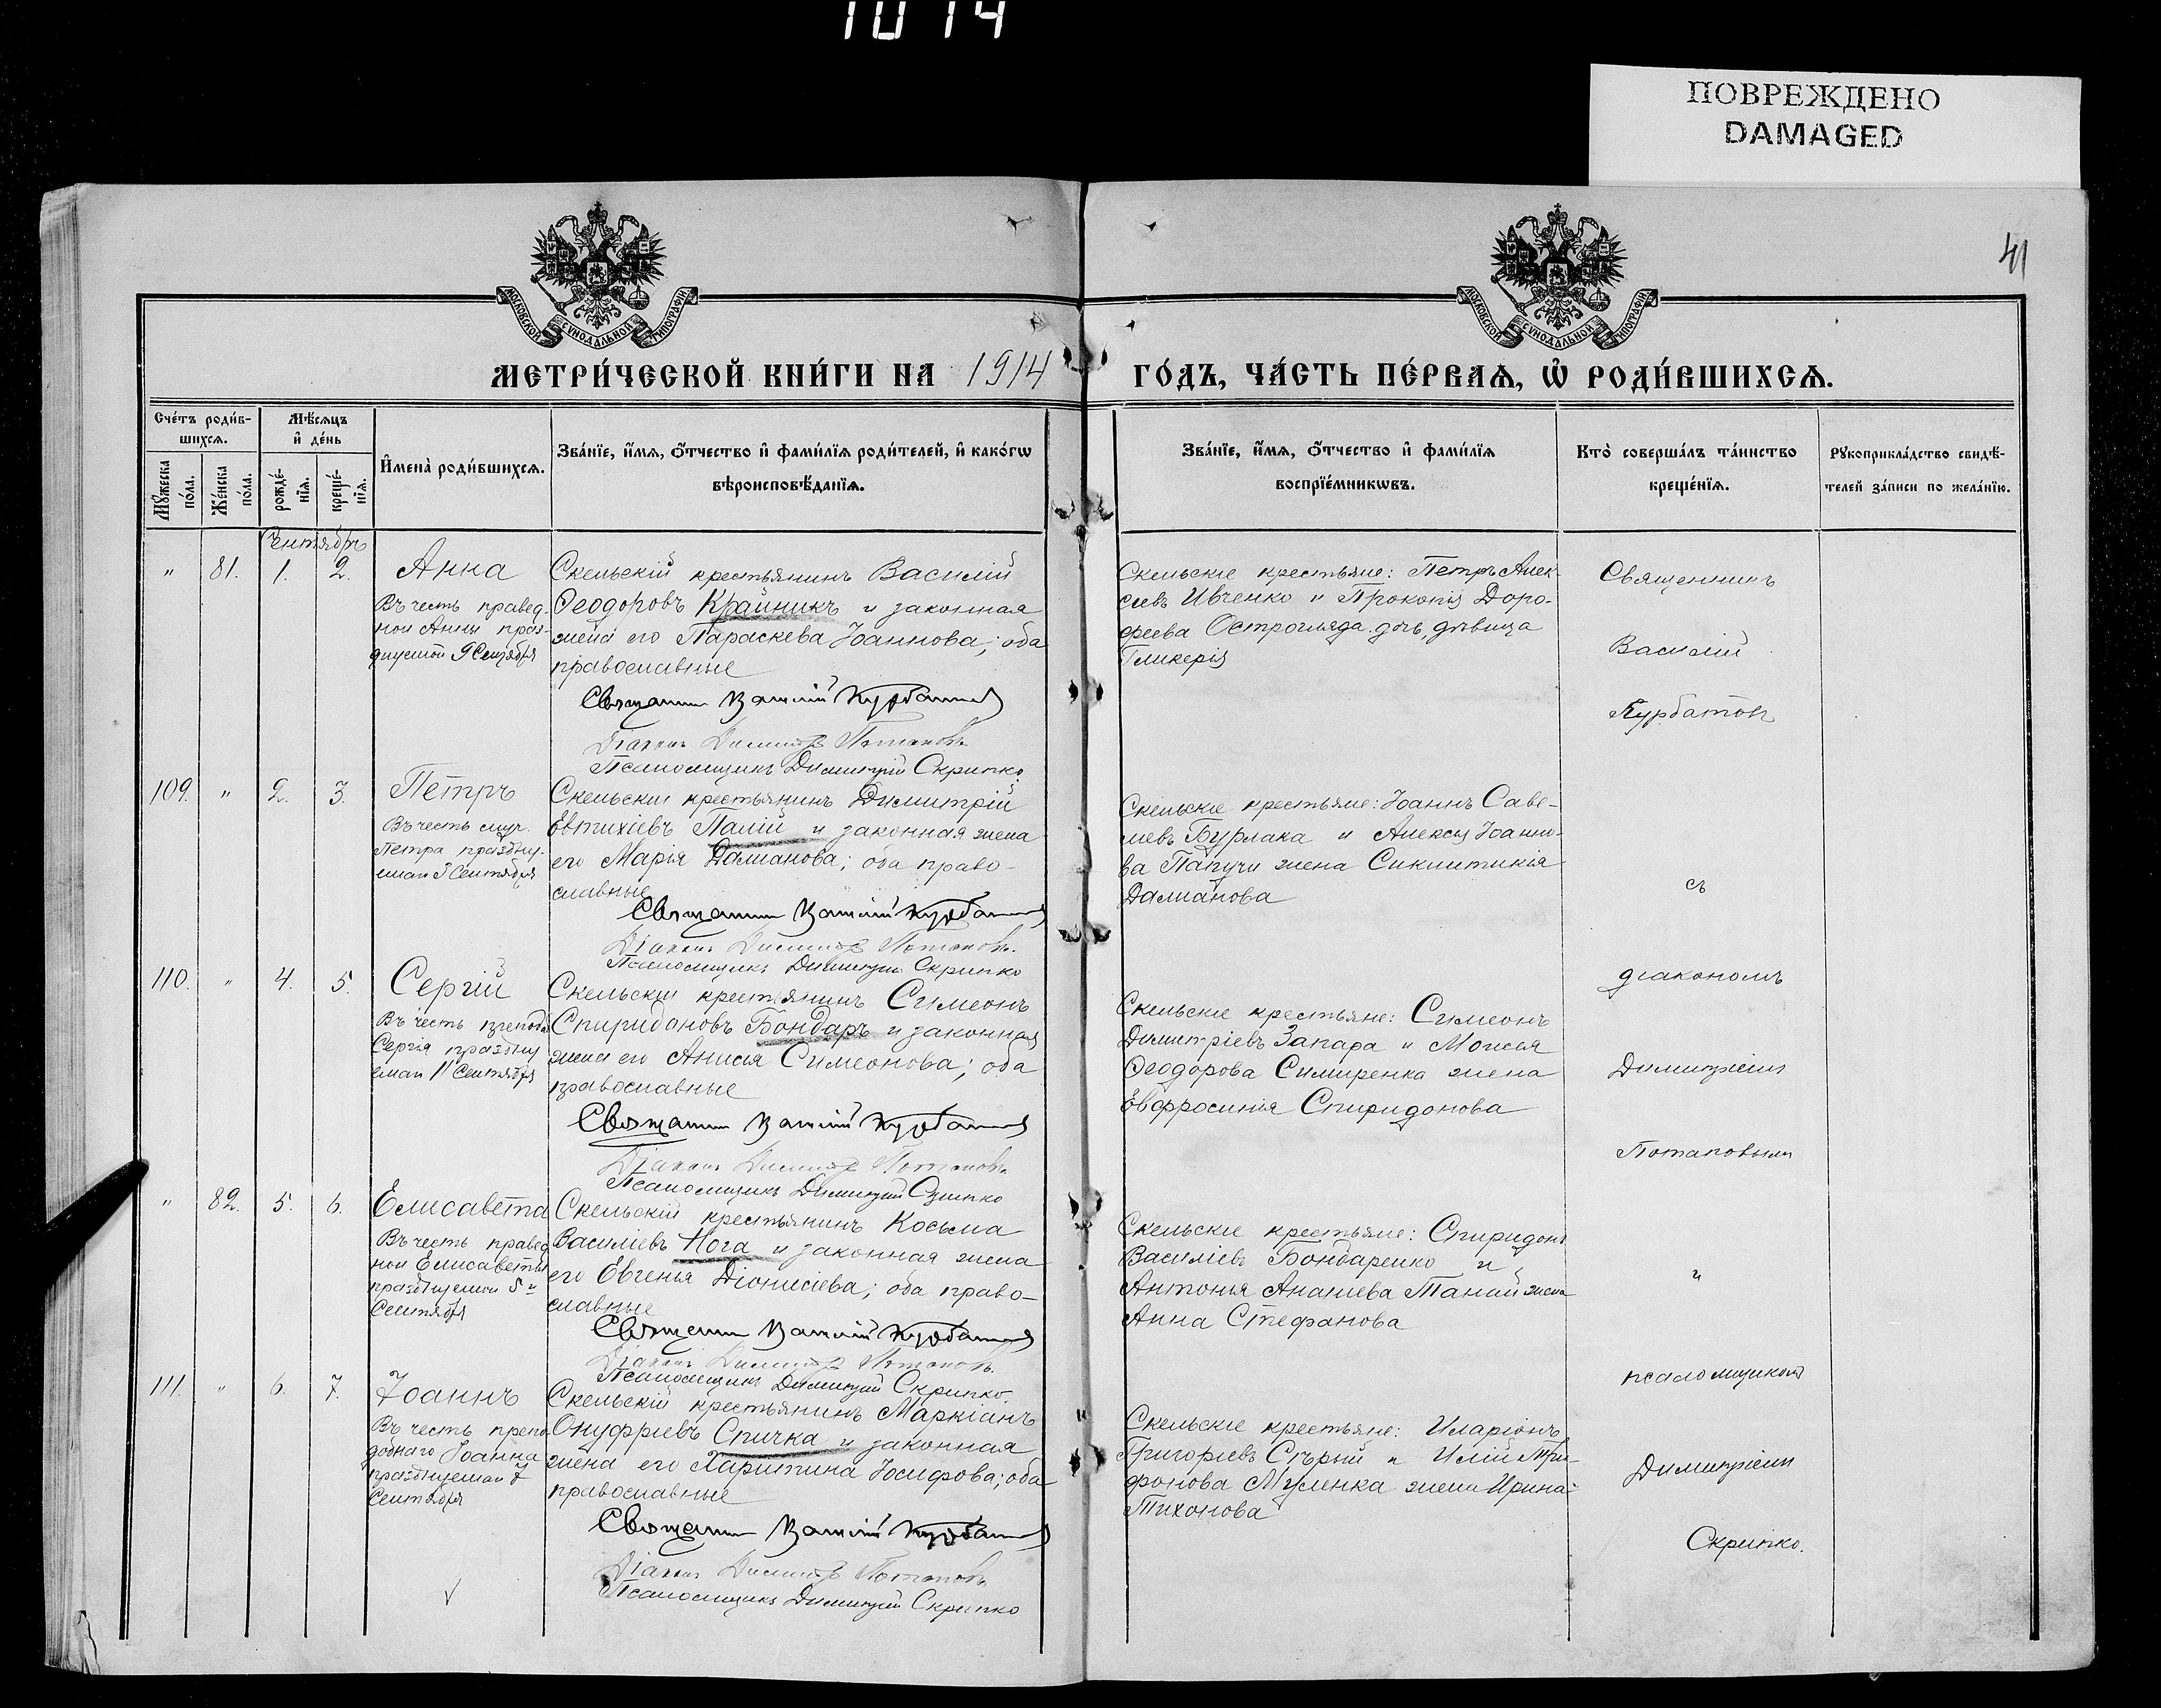 1014
ПОВРЕЖДЕНО
DAMAGED
41
МОСКОВСКОЙ СУНОДАЛЬНОЙ ТИПОГРАФІИ
МОСКОВСКОЙ СУНОДАЛЬНОЙ ТИПОГРАФІИ
МЕТРИ́ЧЕСКОЙ КНИ́ГИ НА 1914 ГО́ДЪ, ЧА́СТЬ ПЕ́РВАѦ, Ѡ РОДИ́ВШИХСѦ.
Сче́тъ роди́в-
шихсѧ.
Мѣ́сѧцъ
и҆ де́нь
Мꙋ́жеска
по́ла.
Же́нска
по́ла.
рожде́-
нїѧ.
креще́-
нїѧ.
И҆мена̀ роди́вшихсѧ.
Зва́нїе, и҆́мѧ, ѻ҆́тчество и҆ фами́лїѧ роди́телей, и҆ како́гѡ
вѣроисповѣ́данїѧ.
Зва́нїе, и҆́мѧ, ѻ҆́тчество и҆ фами́лїѧ
воспрїе́мникѡвъ.
Кто̀ соверша́лъ та́инство
креще́нїѧ.
Рꙋкоприкла́дство свидѣ́-
телей за́писи по жела́нїю.
Сентябрь
" 81. 1. 2. Анна
Въ честь правед-
ной Анны праз-
днуемой 9 Сентября
Скельскій крестьянинъ Василій
Ѳеодоровъ Крайникъ и законная
жена его Параскева Іоаннова; оба
православные
Священник Василій Курбатов
Діаконъ Димитрій Потаповъ
Псаломщикъ Димитрій Скрипко
Скельскіе крестьяне: Петръ Алек-
сіевъ Ивченко и Прокопія Доро-
феева Острогляда дочь, дѣвица
Гликерія
Священникъ
Василій
Курбатовъ
109. " 2. 3. Петръ
Въ честь муч.
Петра праздну-
емаго 3 Сентября
Скельскій крестьянинъ Димитрій
Евтихіевъ Палій и законная жена
его Марія Даміанова; оба право-
славные
Священник Василій Курбатов
Діаконъ Димитрій Потаповъ
Псаломщикъ Димитрій Скрипко
Скельскіе крестьяне: Іоаннъ Саве-
ліевъ Бурлака и Алексія Іоанно-
ва Папучи жена Синклитикія
Даміанова
съ
110. " 4. 5. Сергій
Въ честь преподоб
Сергія праздну
емаго 11 Сентября
Скельскій крестьянинъ Симеонъ
Спиридоновъ Бондарь и законная
жена его Анисія Симеонова; оба
православные
Священник Василій Курбатов
Діаконъ Димитрій Потаповъ
Псаломщикъ Димитрій Скрипко
Скельскіе крестьяне: Симеонъ
Димитріевъ Запара и Моисея
Ѳеодорова Симиренка жена
Евфросинія Спиридонова
діакономъ
Димитріемъ
Потаповымъ
" 82. 5. 6. Елисавета
Въ честь правед
ной Елисаветы
празднуемой 5го
Сентября
Скельскій крестьянинъ Косьма
Василіевъ Нога и законная жена
его Евгенія Діонисіева; оба право-
славные
Священник Василій Курбатов
Діаконъ Димитрій Потаповъ
Псаломщикъ Димитрій Скрипко
Скельскіе крестьяне: Спиридонъ
Василіевъ Бондаренко и
Антонія Ананіева Танай жена
Анна Стефанова
и
псаломщикомъ
111. " 6. 7. Іоаннъ
Въ честь препо
добнаго Іоанна
празднуемаго
Сентября
Скельскій крестьянинъ Маркіанъ
Онуфріевъ Спичка и законная
жена его Харитина Іосифова; оба
православные
Священник Василій Курбатов
Діаконъ Димитрій Потаповъ
Псаломщикъ Димитрій Скрипко
Скельскіе крестьяне: Иларіонъ
Григоріевъ Сѣрый и Иліи Три-
фонова жена Ирина
Тихонова
Димитріемъ
Скрипко.